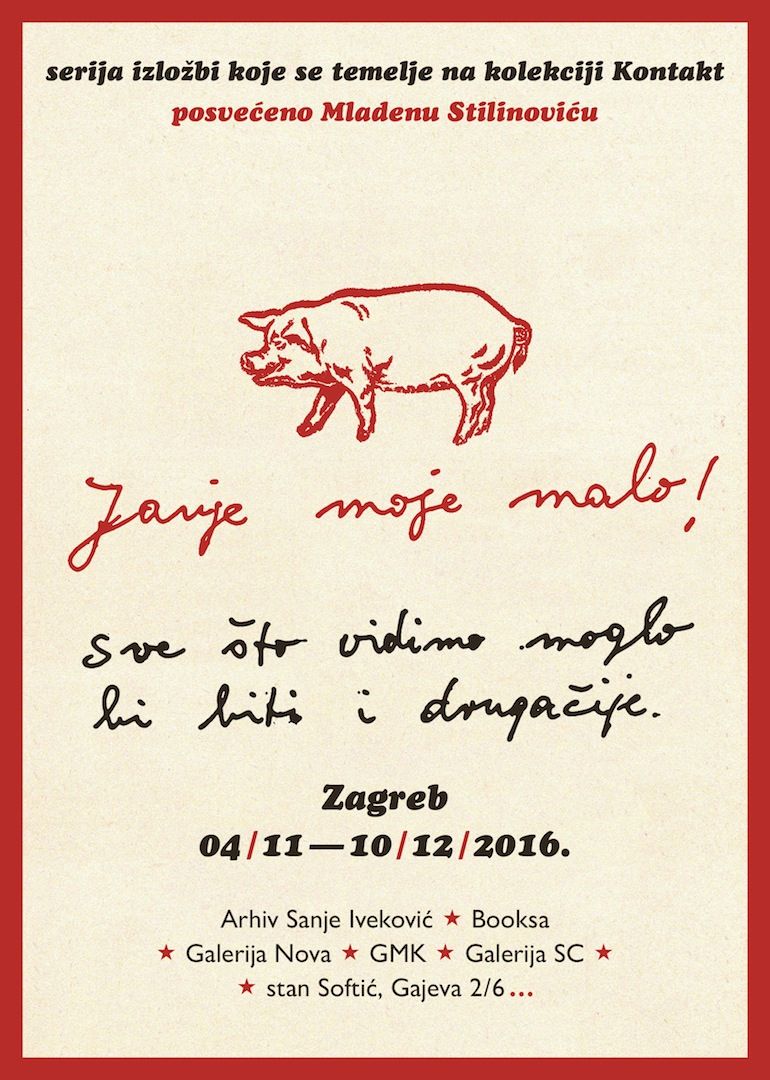 serija izložbi koje se temelje na kolekciji Kontakt
posvećeno Mladenu Stilinoviću
Janje moje malo!
sve što vidimo moglo
bi biti i drugačije.
Zagreb
04/11—10/12/2016.
Arhiv Sanje Iveković ★ Booksa
★ Galerija Nova ★ GMK ★ Galerija SC ★
★ stan Softić, Gajeva 2/6...